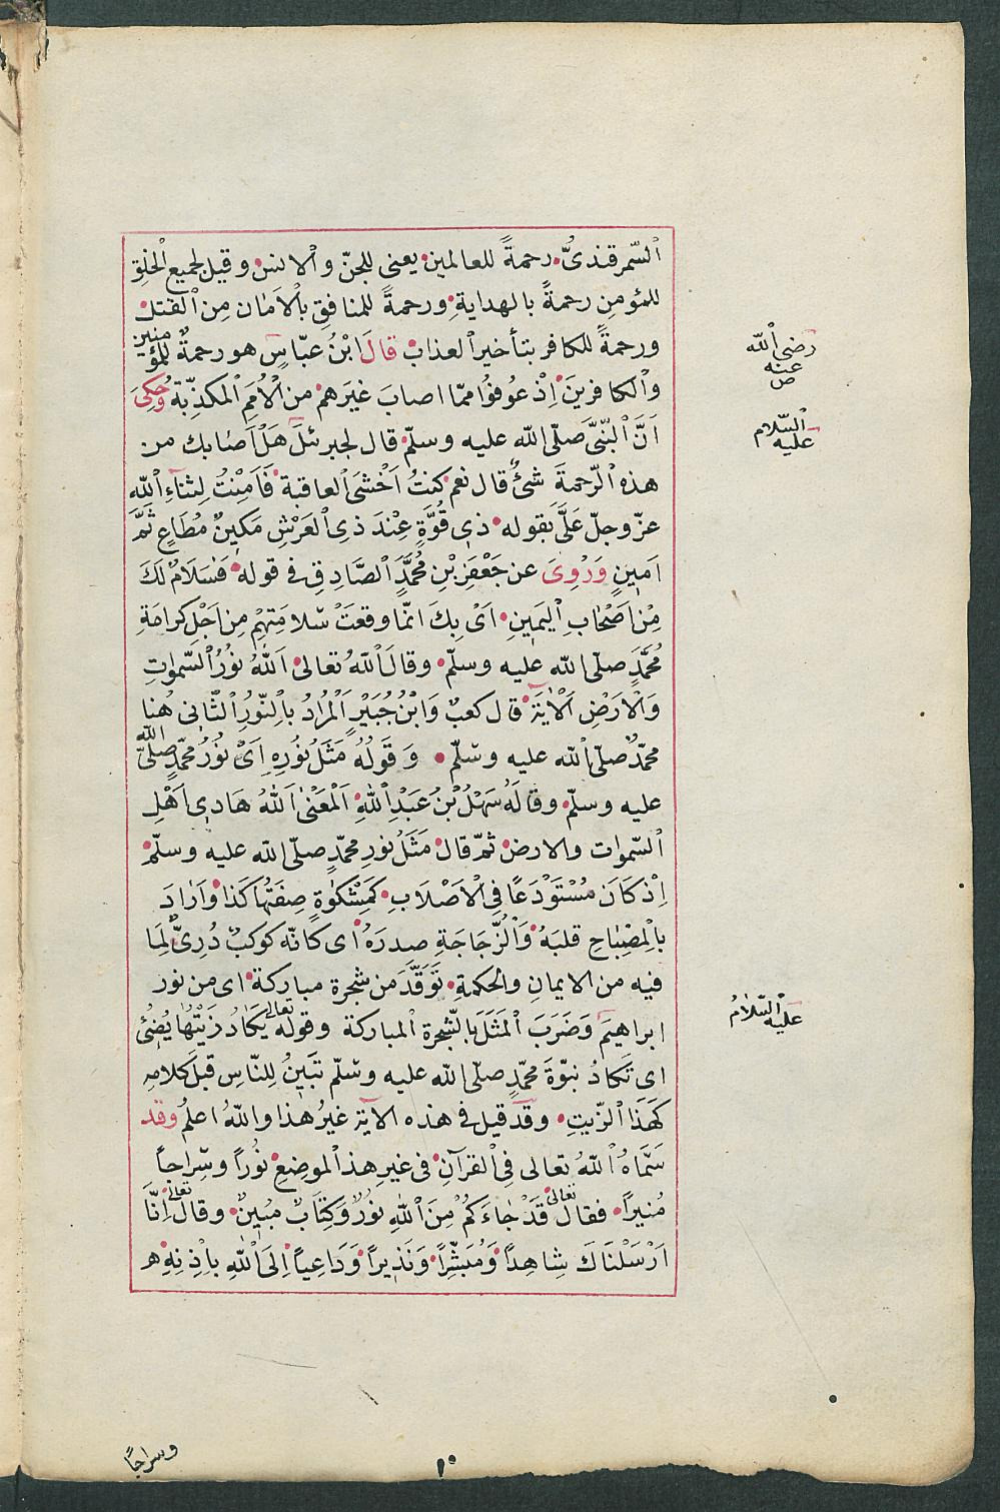 اَلسّمرقندىُّ رحمةً للعالمين يعنى للجنّ والانس وقيل لجميع الخلق
للمؤمنِ رحمةً بالهدايةِ ورحمةً للمنافقِ بالاَمَان مِن القتل
ورحمةً للكافر بتأخير العذاب قالَ ابْنُ عبّاسٍ هو رحمةٌ للمؤمنين
رضى الله
عنه
ص
والكافرينَ اِذْ عُوفوُا ممّا اصابَ غيَرهم من الاُمَمِ المكذّبة وَحُكِىَ
اَنَّ النّبىَّ صلّى الله عليه وسلّم قال لجبرئلَ هَلْ اَصَابك من
عليه السّلام
هذه الرّحمةَ شئٌ قال نعم كنتُ اَخْشَى العاقبة فَاَمِنْتُ لِثنَاءِ اللّهِ
عزّ وجلّ عَلَىَّ بقوله ذى قُوَّةٍ عِنْدَ ذِى العَرْشِ مَكينٌ مُطَاعٍ ثَمَّ
اَمينٍ وَرُوِىَ عن جَعْفَرِ بْنِ مُحمَّدٍ الصَّادِقِ فى قوله فسَلَامٌ لَكَ
مِنْ اصْحَابِ اليَمينِ اَىْ بِكَ انّما وقعَتْ سَلامَتهُمْ مِن اَجْلِ كرامَةِ
مُحمَّدٍ صلّى الله عليه وسلّم وقالَ اللّهُ تعالى اَللّهُ نُوُر السّمٰواتِ
وَالْاَرْضِ اَلْايَة قال كعبٌ وَابْنُ جُبَيْرٍ اَلْمُرَادُ بالنّورِ الثّانى هُنا
محمّدٌ صلّى الله عليه وسلّم وَقَوْلُهُ مَثَلُ نُورِهِ اَىْ نُوُر محمّدٍ صلّى الله
عليه وسلّم وقالَ سَهْلُ بْنُ عَبْدِ اللّهِ اَلْمَعْنٰى اَللّهُ هَادِى اَهْلِ
السّموات والارض ثمّ قال مَثَلُ نورِ محمّدٍ صلّى الله عليه وسلّم
اِذْ كَانَ مُسْتَوْدَعًا فِى الْاَصْلَابِ كَمِشْكوٰةٍ صِفَتُهَا كَذا وَاَرَادَ
بِالْمِصْبَاحِ قلبَهُ وَالزُّجَاجَةِ صدرَهُ اى كانّه كوكبٌ دُرِىٌّ لِمَا
فيه من الايمانِ والحكمةِ تَوَقَّدَ من شجرة مباركة اى من نور
ابراهيمَ وَضَرَبَ المَثَلَ بالشّجرة المباركة وقوله تعالى يَكَادُ زَيْتُهَا يُضِئُ
عليه السّلامُ
اى تَكادُ نبوّةَ محمّدٍ صلّى الله عليه وسلّم تَبَينُ لِلنّاسِ قبلَ كلامِه
كَهَذَا الزّيتِ وقَدْ قيل فى هذه الاَية غيرُ هذا واللّهُ اعلمُ وقد
سَمَّاهُ اللّهُ تعالى فِى القرآنِ فى غيرِ هذا الموضعِ نُوراً وسَراجاً
مُنيراً فقال تعالى قَدْ جَاءَكُمْ مِنَ اللّهِ نُوُرٌ وَكِتَابٌ مُبينٌ وقال تعالى اِنَّا
اَرْسَلْنَاكَ شاهِداً وَمُبَشِّراً وَنَذيراً وَدَاعِياً اِلَى اللّهِ بِاِذْنِهِ
وسراجًا
١٠